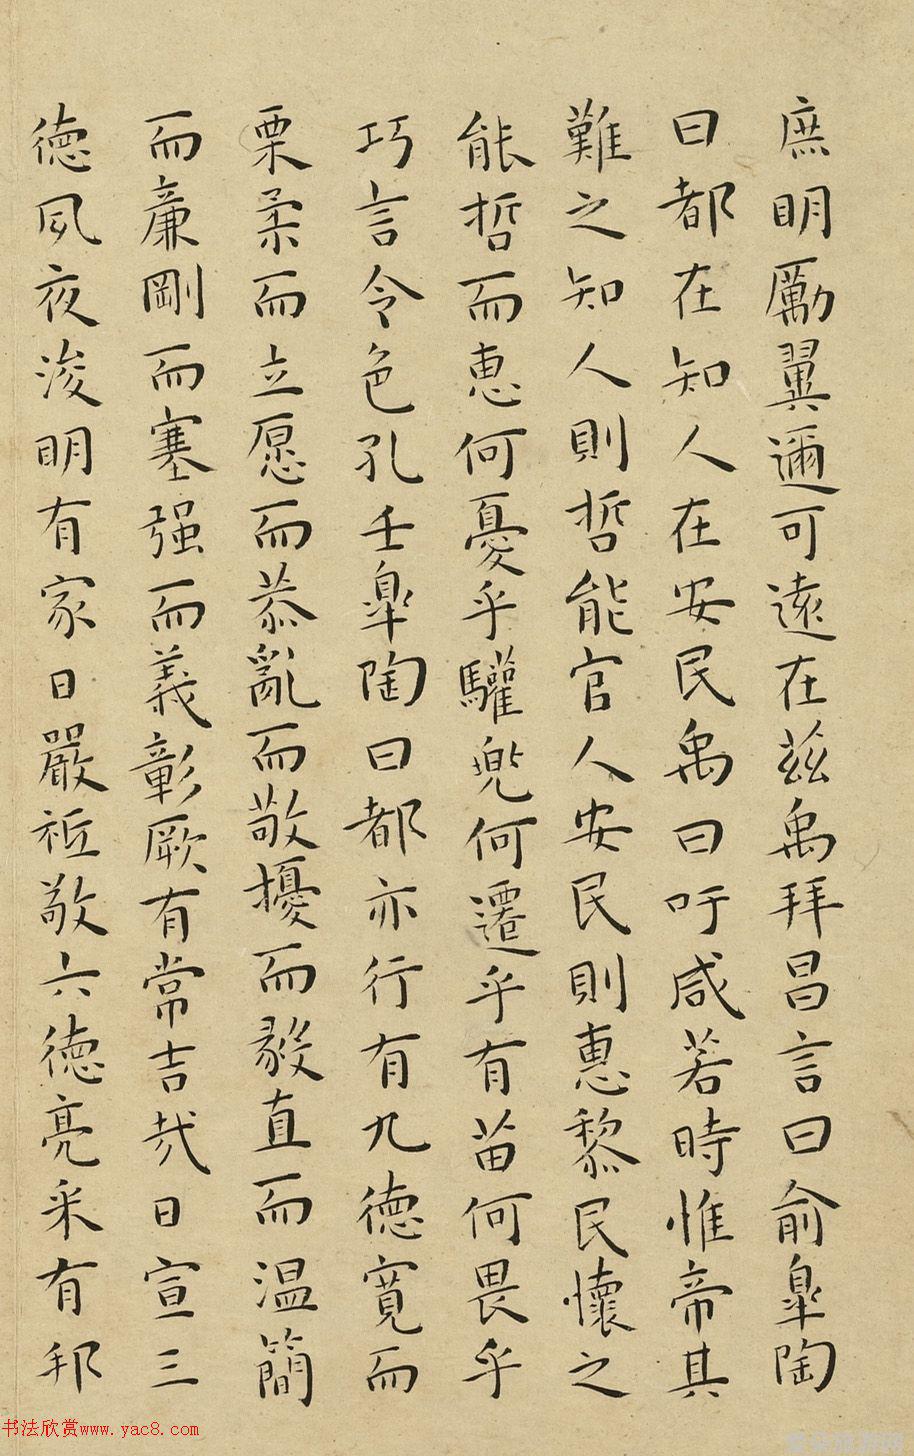 庶明厲翼邇可遠在茲禹拜昌言曰俞皋陶
曰都在知人在安民禹曰吁咸若時惟帝其
難之知人則哲能官人安民則惠黎民懷之
能哲而惠何憂乎驩兜何遷乎有苗何畏乎
巧言令色孔壬皋陶曰都亦行有九德寬而
栗柔而立愿而恭亂而敬擾而毅直而温簡
而廉剛而塞强而義彰厥有常吉哉日宣三
德夙夜浚明有家日嚴祗敬六德亮采有邦
书法欣赏www.yac8.com